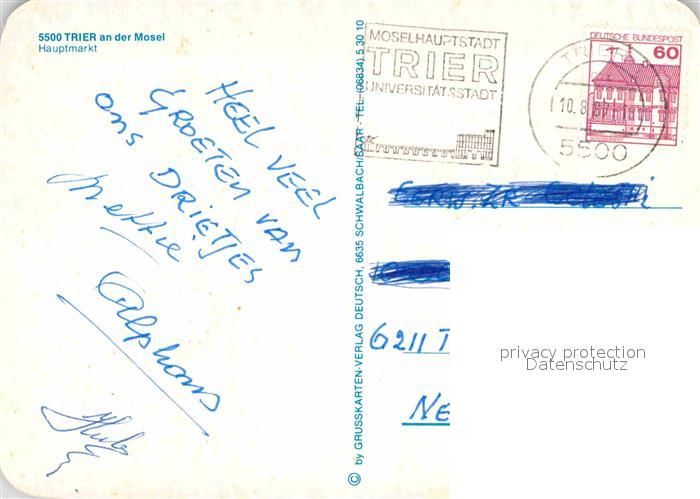 5500 TRIER an der Mosel
Hauptmarkt
HEEL VEEL
GROETEN VAN
ons DRIETJES
Nettie
Alphons
© by GRUSSKARTEN-VERLAG DEUTSCH, 6635 SCHWALBACH/SAAR · TEL. (06834) 5 30 10
MOSELHAUPTSTADT
TRIER
UNIVERSITÄTSSTADT
DEUTSCHE BUNDESPOST
60
TRIER
10.8.
5500
6211 T
NE
privacy protection
Datenschutz